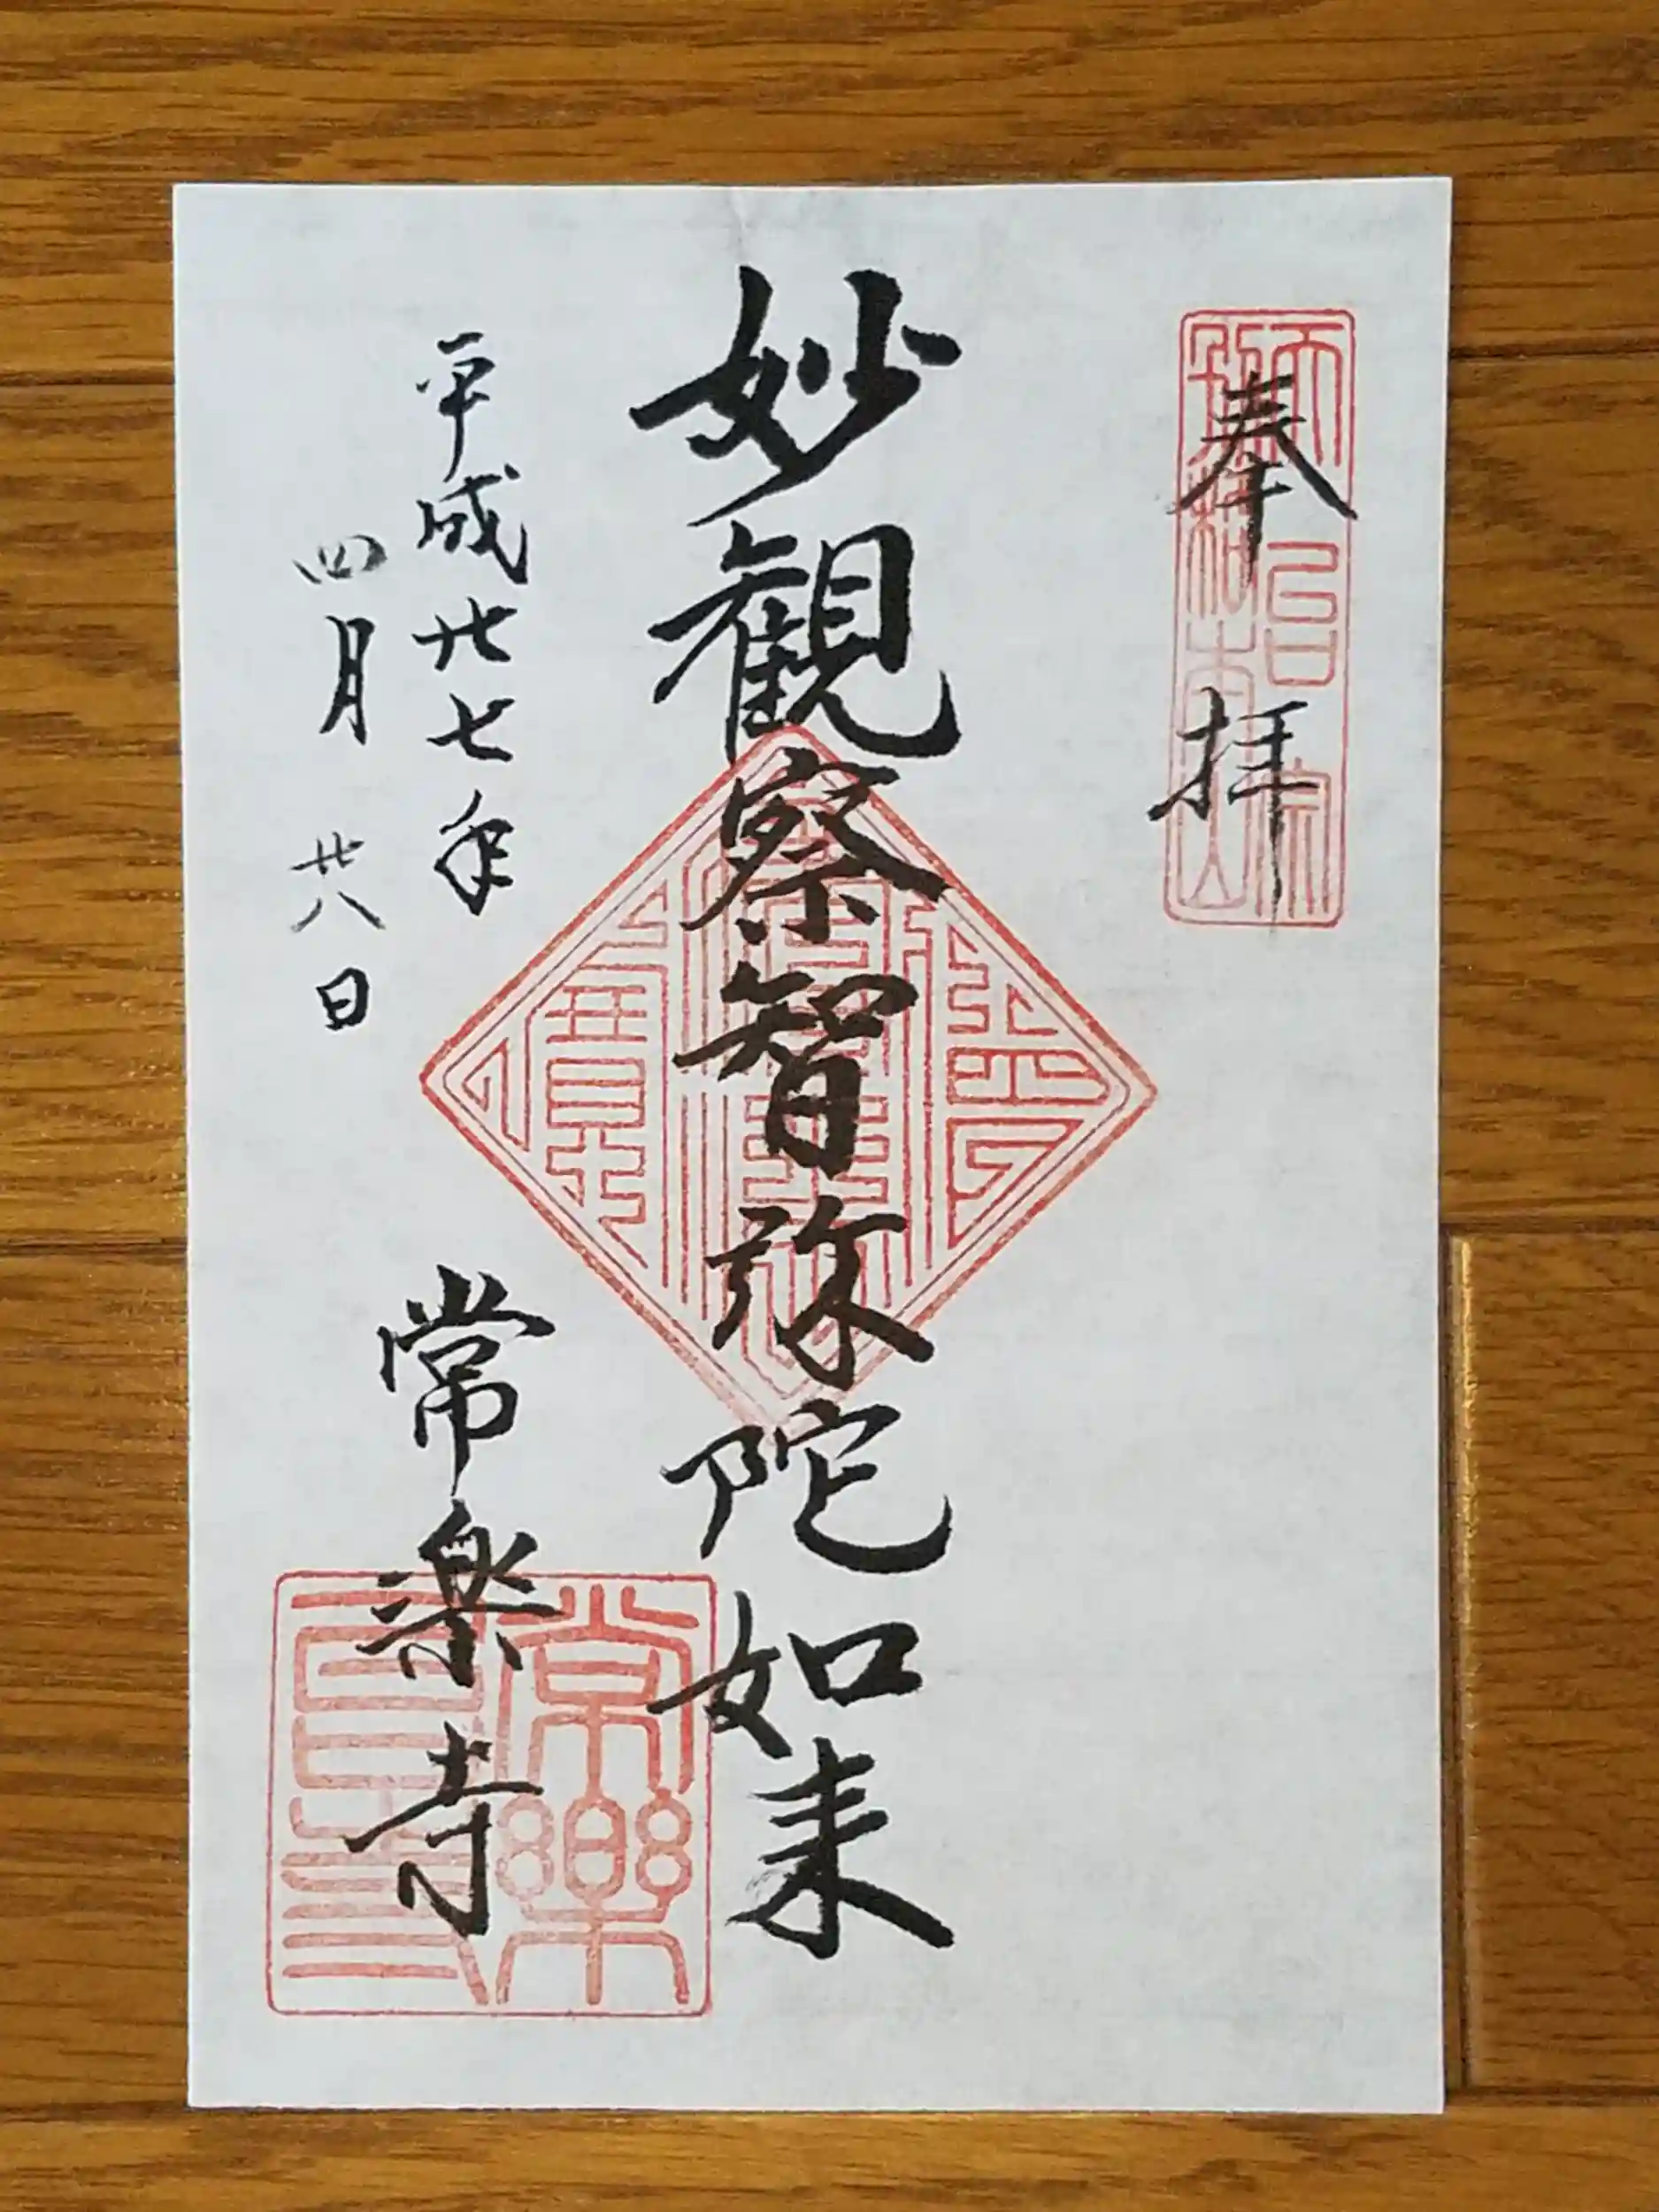 奉拝
妙観察智弥陀如来
平成廿七年
四月廿八日
常楽寺